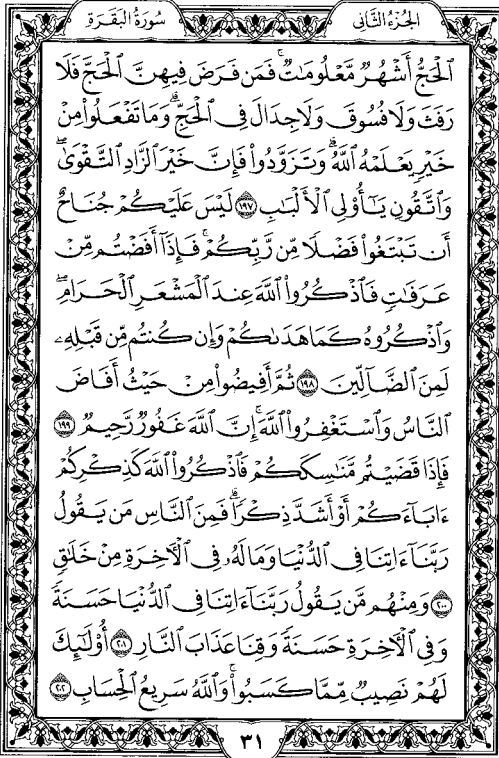 الجُزْءُ الثَّانِي سُورَةُ البَقَرَةِ
ٱلۡحَجُّ أَشۡهُرٞ مَّعۡلُومَٰتٞۚ فَمَن فَرَضَ فِيهِنَّ ٱلۡحَجَّ فَلَا
رَفَثَ وَلَا فُسُوقَ وَلَا جِدَالَ فِي ٱلۡحَجِّۗ وَمَا تَفۡعَلُواْ مِنۡ
خَيۡرٖ يَعۡلَمۡهُ ٱللَّهُۗ وَتَزَوَّدُواْ فَإِنَّ خَيۡرَ ٱلزَّادِ ٱلتَّقۡوَىٰۖ
وَٱتَّقُونِ يَٰٓأُوْلِي ٱلۡأَلۡبَٰبِ ١٩٧ لَيۡسَ عَلَيۡكُمۡ جُنَاحٌ
أَن تَبۡتَغُواْ فَضۡلٗا مِّن رَّبِّكُمۡۚ فَإِذَآ أَفَضۡتُم مِّنۡ
عَرَفَٰتٖ فَٱذۡكُرُواْ ٱللَّهَ عِندَ ٱلۡمَشۡعَرِ ٱلۡحَرَامِۖ
وَٱذۡكُرُوهُ كَمَا هَدَىٰكُمۡ وَإِن كُنتُم مِّن قَبۡلِهِۦ
لَمِنَ ٱلضَّآلِّينَ ١٩٨ ثُمَّ أَفِيضُواْ مِنۡ حَيۡثُ أَفَاضَ
ٱلنَّاسُ وَٱسۡتَغۡفِرُواْ ٱللَّهَۚ إِنَّ ٱللَّهَ غَفُورٞ رَّحِيمٞ ١٩٩
فَإِذَا قَضَيۡتُم مَّنَٰسِكَكُمۡ فَٱذۡكُرُواْ ٱللَّهَ كَذِكۡرِكُمۡ
ءَابَآءَكُمۡ أَوۡ أَشَدَّ ذِكۡرٗاۗ فَمِنَ ٱلنَّاسِ مَن يَقُولُ
رَبَّنَآ ءَاتِنَا فِي ٱلدُّنۡيَا وَمَا لَهُۥ فِي ٱلۡأٓخِرَةِ مِنۡ خَلَٰقٖ
٢٠٠ وَمِنۡهُم مَّن يَقُولُ رَبَّنَآ ءَاتِنَا فِي ٱلدُّنۡيَا حَسَنَةٗ
وَفِي ٱلۡأٓخِرَةِ حَسَنَةٗ وَقِنَا عَذَابَ ٱلنَّارِ ٢٠١ أُوْلَٰٓئِكَ
لَهُمۡ نَصِيبٞ مِّمَّا كَسَبُواْۚ وَٱللَّهُ سَرِيعُ ٱلۡحِسَابِ ٢٠٢
٣١